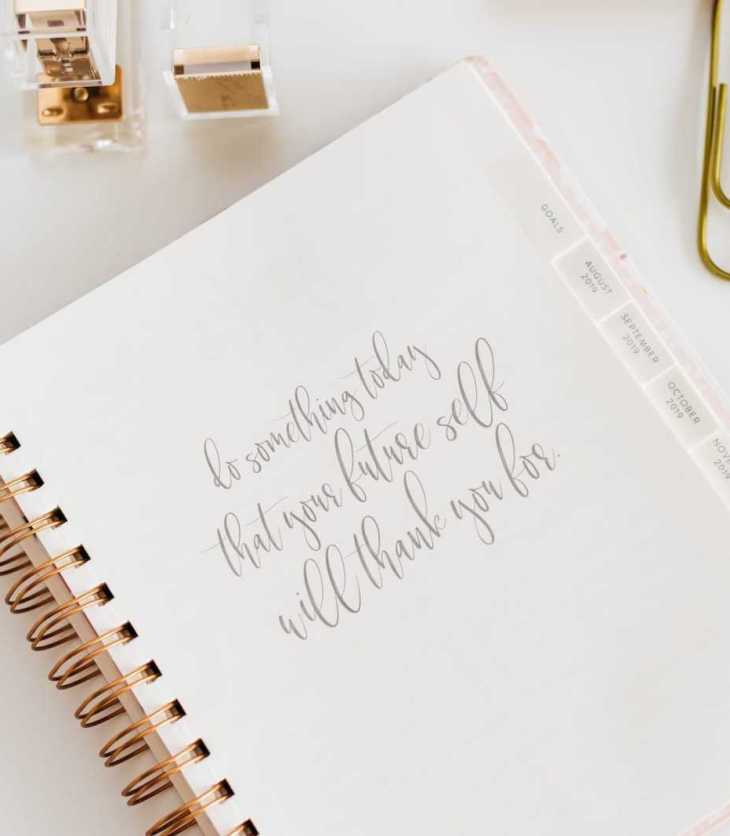 do something today
that your future self
will thank you for.
GOALS
AUGUST
2019
SEPTEMBER
2019
OCTOBER
2019
2019